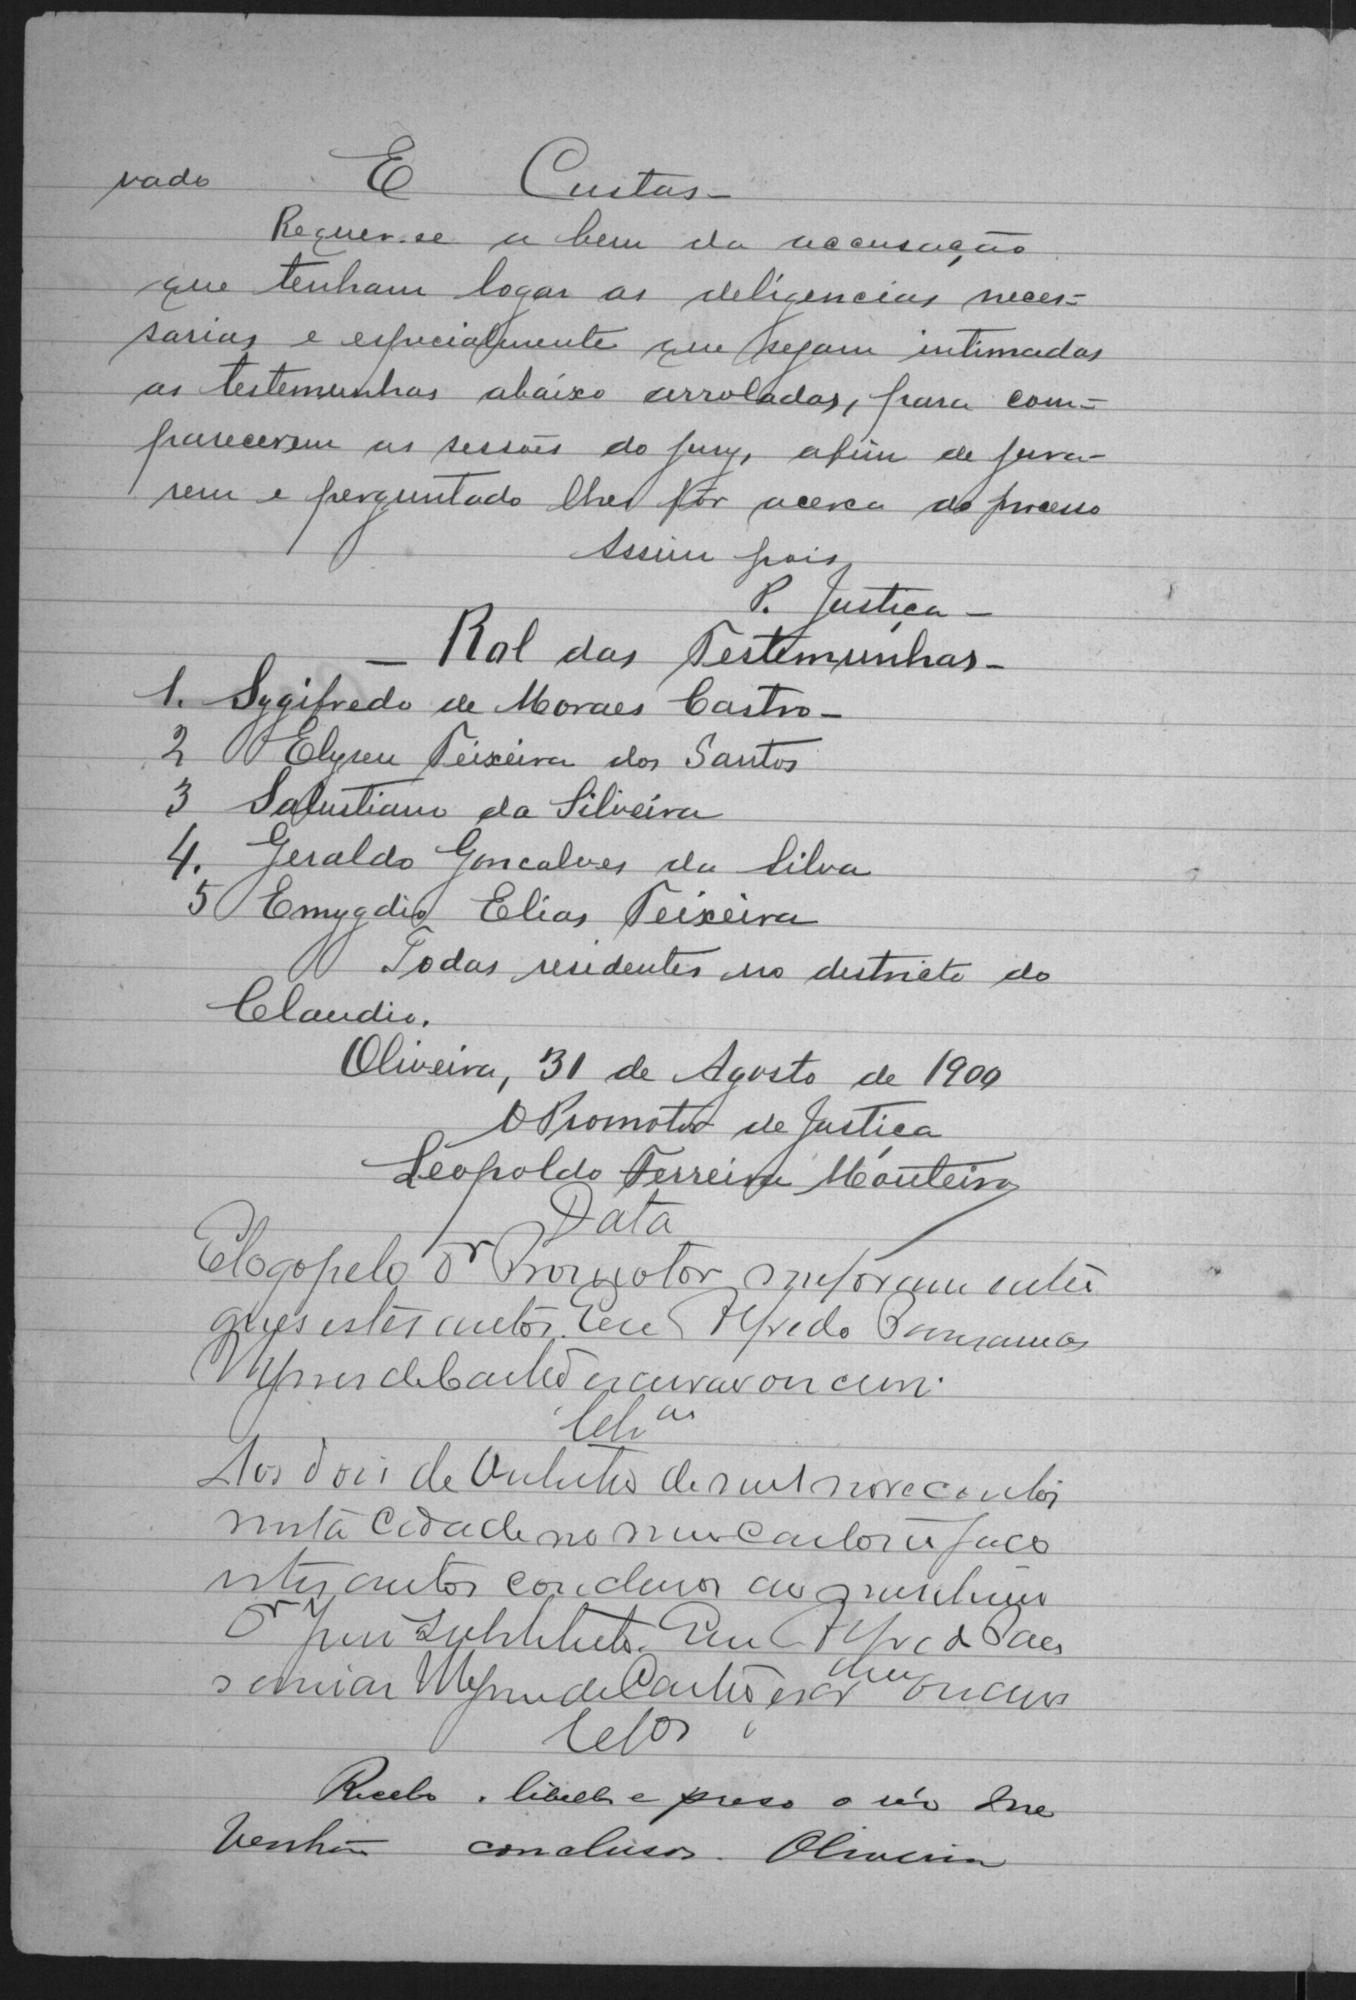 vado E Custas -
Requer-se a bem da accusação
que tenham logar as deligencias neces=
sarias e especialmente que sejam intimadas
as testemunhas abaixo arroladas, para com=
parecerem as sessões do jury, afim de jura-
rem e perguntado lhes fôr acerca do processo
Assim pois,
P. Justiça -
- Rol das Testemunhas -
1. Sygifredo de Moraes Castro -
2 Elyseu Teixeira dos Santos
3 Salustiano da Silveira
4. Geraldo Gonçalves da Silva
5 Emygdio Elias Teixeira
Todas residentes no districto do
Claudio.
Oliveira, 31 de Agosto de 1900
O Promotor de Justiça
Leopoldo Ferreira Monteiro
Data
E logo pelo Dr Promotor me foram entre
gues estes autos. Eu Alfredo
de Castro escrivão
Clsão
Aos dois de de mil novecentos
nesta cidade no meu cartorio faço
estes autos conclusos ao
Dr Juiz Substituto. Eu Alfredo
de Castro
Clsos
Recebo o libello e preso o réo me
Venhão conclusos. Oliveira